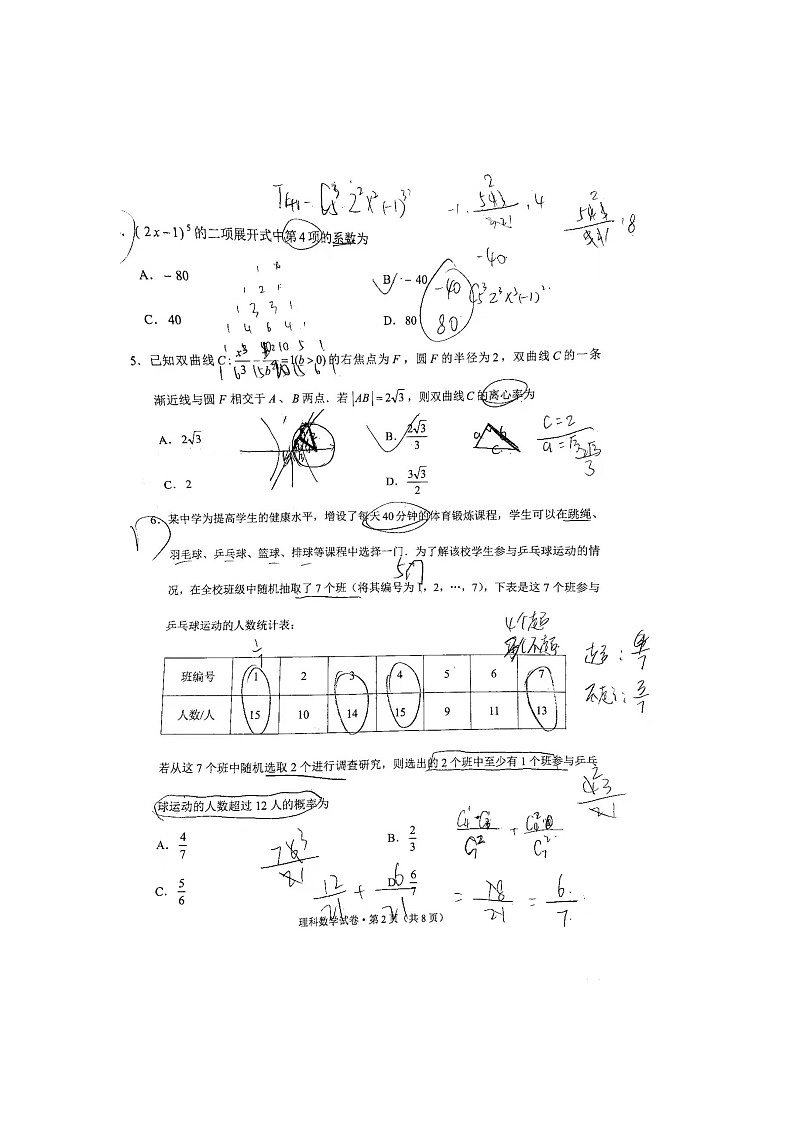 T_{k+1} = C_5^3 2^2 x^2 (-1)^3
(2x-1)^5 的二项展开式中第4项的系数为
-40
A. -80
B. -40
-40
C_5^3 2^3 x^3 (-1)^2
C. 40
D. 80
80
1 2 1
1 3 3 1
1 4 6 4 1
5. 已知双曲线 C: =1(b>0) 的右焦点为 F，圆 F 的半径为 2，双曲线 C 的一条
渐近线与圆 F 相交于 A、B 两点. 若 |AB|=2√3，则双曲线 C 的离心率为
A. 2√3
B. 2√3/3
a
b
c
c=2
a=√3
2√3/3
C. 2
D. 3√3/2
6. 某中学为提高学生的健康水平，增设了每天 40 分钟的体育锻炼课程，学生可以在跳绳、
羽毛球、乒乓球、篮球、排球等课程中选择一门. 为了解该校学生参与乒乓球运动的情
5门
况，在全校班级中随机抽取了 7 个班（将其编号为 1，2，…，7），下表是这 7 个班参与
乒乓球运动的人数统计表：
4个超
班编号 1 2 3 4 5 6 7
人数/人 15 10 14 15 9 11 13
若从这 7 个班中随机选取 2 个进行调查研究，则选出的 2 个班中至少有 1 个班参与乒乓
球运动的人数超过 12 人的概率为
A. 4/7
B. 2/3
C. 5/6
D. 6/7
12/21 + 6/21 = 18/21 = 6/7
理科数学试卷·第 2 页（共 8 页）